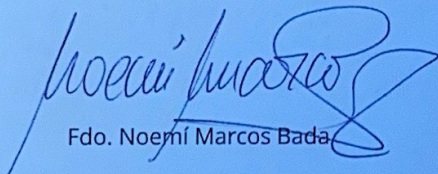 Noemí Marcos
Fdo. Noemí Marcos Bada